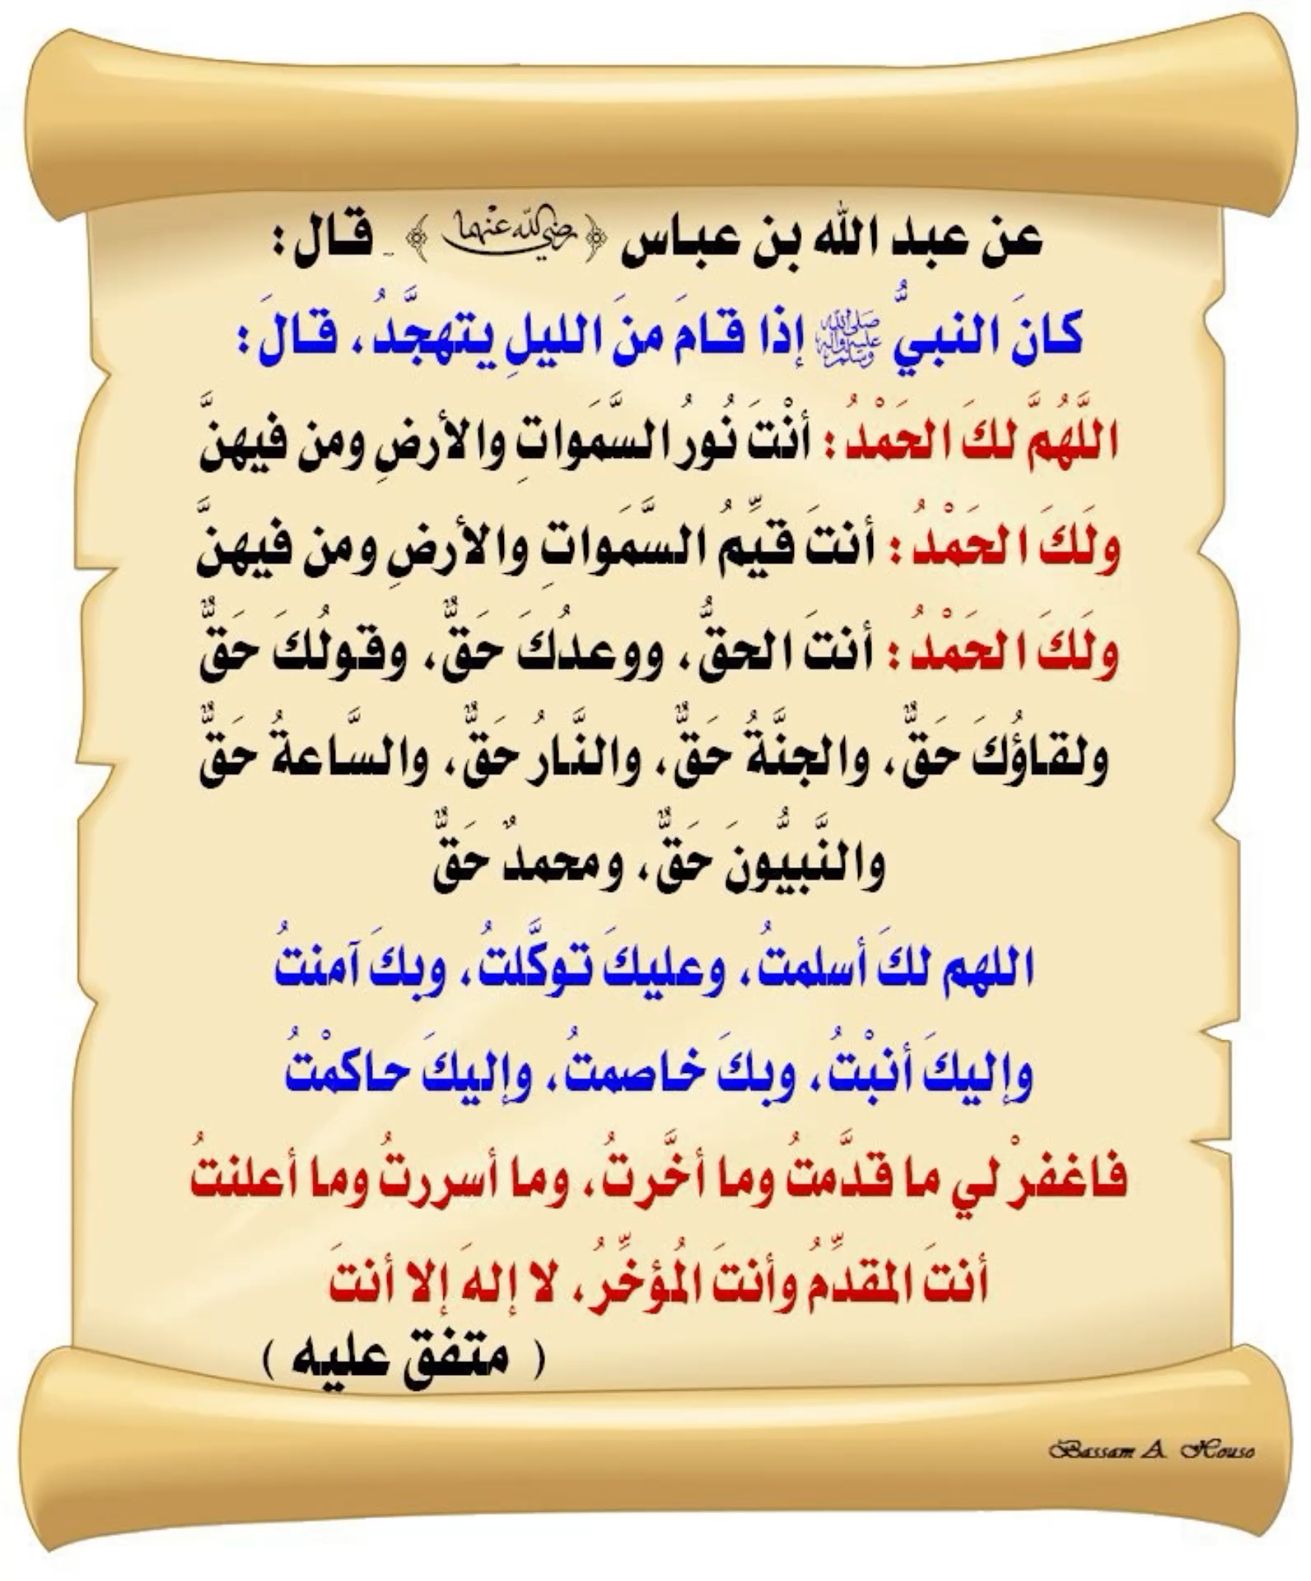 عن عبد الله بن عباس ﴿رضي الله عنهما﴾ ـ قال:
كانَ النبيُّ ﷺ إذا قامَ منَ الليلِ يتهجَّدُ، قالَ:
اللَّهُمَّ لكَ الحَمْدُ: أنْتَ نُورُ السَّمَواتِ والأرضِ ومن فيهنَّ
ولَكَ الحَمْدُ: أنتَ قيِّمُ السَّمَواتِ والأرضِ ومن فيهنَّ
ولَكَ الحَمْدُ: أنتَ الحقُّ، ووعدُكَ حَقٌّ، وقولُكَ حَقٌّ
ولقاؤُكَ حَقٌّ، والجنَّةُ حَقٌّ، والنَّارُ حَقٌّ، والسَّاعةُ حَقٌّ
والنَّبيُّونَ حَقٌّ، ومحمدٌ حَقٌّ
اللهم لكَ أسلمتُ، وعليكَ توكَّلتُ، وبكَ آمنتُ
وإليكَ أنبْتُ، وبكَ خاصمتُ، وإليكَ حاكمْتُ
فاغفرْ لي ما قدَّمتُ وما أخَّرتُ، وما أسررتُ وما أعلنتُ
أنتَ المقدِّمُ وأنتَ المُؤخِّرُ، لا إلهَ إلا أنتَ
( متفق عليه )
Bassam A. Houso